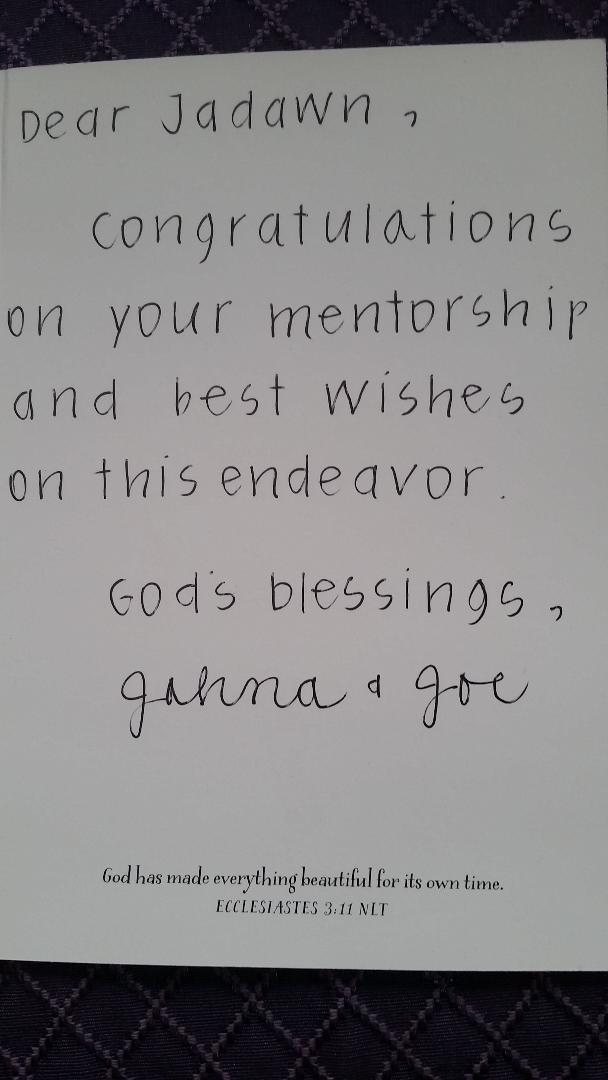 Dear Jadawn,
Congratulations
on your mentorship
and best wishes
on this endeavor.
God's blessings,
&
God has made everything beautiful for its own time.
ECCLESIASTES 3:11 NLT